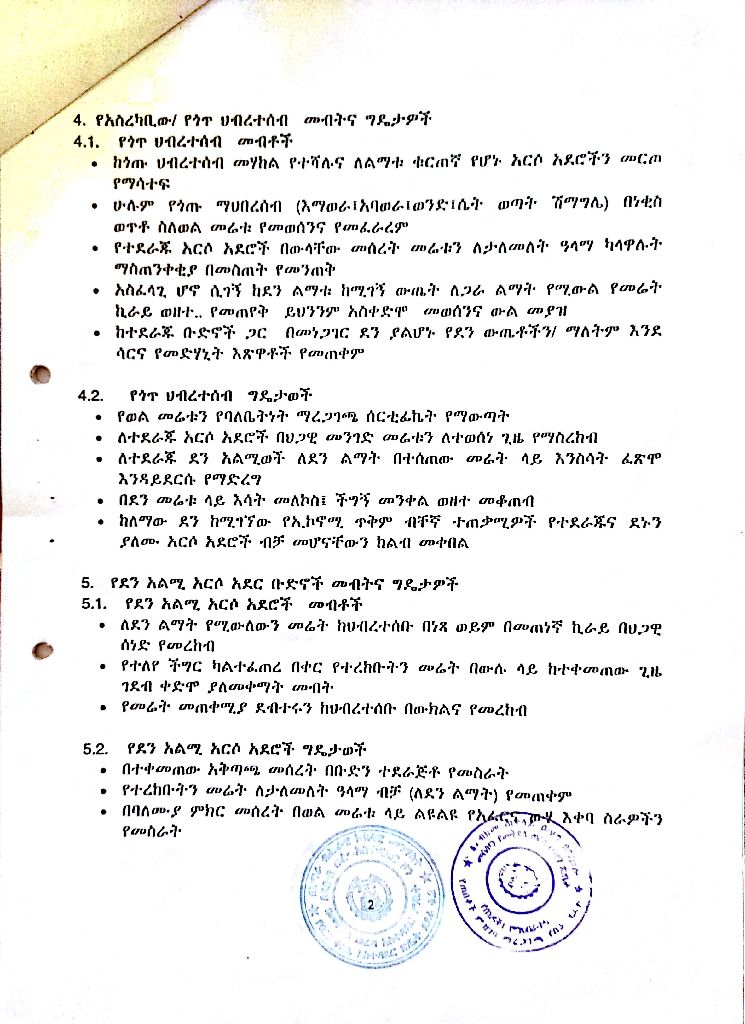 4. የአስረካቢው/ የጎጥ ህብረተሰብ መብትና ግዴታዎች
4.1. የጎጥ ህብረተሰብ መብቶች
• ከጎጡ ህብረተሰብ መሃከል የተሻሉና ለልማቱ ቁርጠኛ የሆኑ አርሶ አደሮችን መርጦ
የማሳተፍ
• ሁሉም የጎጡ ማህበረሰብ (እማወራ፣አባወራ፣ወንድ፣ሴት ወጣት ሽማግሌ) በነቂስ
ወጥቶ ስለወል መሬቱ የመወሰንና የመፈራረም
• የተደራጁ አርሶ አደሮች በውላቸው መሰረት መሬቱን ለታለመለት ዓላማ ካላዋሉት
ማስጠንቀቂያ በመስጠት የመንጠቅ
• አስፈላጊ ሆኖ ሲገኝ ከደን ልማቱ ከሚገኝ ውጤት ለጋራ ልማት የሚውል የመሬት
ኪራይ ወዘተ.. የመጠየቅ ይህንንም አስቀድሞ መወሰንና ውል መያዝ
• ከተደራጁ ቡድኖች ጋር በመነጋገር ደን ያልሆኑ የደን ውጤቶችን/ ማለትም እንደ
ሳርና የመድሃኒት እጽዋቶች የመጠቀም
4.2. የጎጥ ህብረተሰብ ግዴታወች
• የወል መሬቱን የባለቤትነት ማረጋገጫ ሰርቲፊኬት የማውጣት
• ለተደራጁ አርሶ አደሮች በህጋዊ መንገድ መሬቱን ለተወሰነ ጊዜ የማስረከብ
• ለተደራጁ ደን አልሚወች ለደን ልማት በተሰጠው መሬት ላይ እንስሳት ፈጽሞ
እንዳይደርሱ የማድረግ
• በደን መሬቱ ላይ እሳት መለኮስ፤ ችግኝ መንቀል ወዘተ መቆጠብ
• ከለማው ደን ከሚገኘው የኢኮኖሚ ጥቅም ብቸኛ ተጠቃሚዎች የተደራጁና ደኑን
ያለሙ አርሶ አደሮች ብቻ መሆናቸውን ከልብ መቀበል
5. የደን አልሚ አርሶ አደር ቡድኖች መብትና ግዴታዎች
5.1. የደን አልሚ አርሶ አደሮች መብቶች
• ለደን ልማት የሚውለውን መሬት ከህብረተሰቡ በነጻ ወይም በመጠነኛ ኪራይ በህጋዊ
ሰነድ የመረከብ
• የተለየ ችግር ካልተፈጠረ በቀር የተረከቡትን መሬት በውሉ ላይ ከተቀመጠው ጊዜ
ገደብ ቀድሞ ያለመቀማት መብት
• የመሬት መጠቀሚያ ደብተሩን ከህብረተሰቡ በውክልና የመረከብ
5.2. የደን አልሚ አርሶ አደሮች ግዴታወች
• በተቀመጠው አቅጣጫ መሰረት በቡድን ተደራጅቶ የመስራት
• የተረከቡትን መሬት ለታለመለት ዓላማ ብቻ (ለደን ልማት) የመጠቀም
• በባለሙያ ምክር መሰረት በወል መሬቱ ላይ ልዩልዩ የአፈርና ውሃ እቀባ ስራዎችን
የመስራት
2